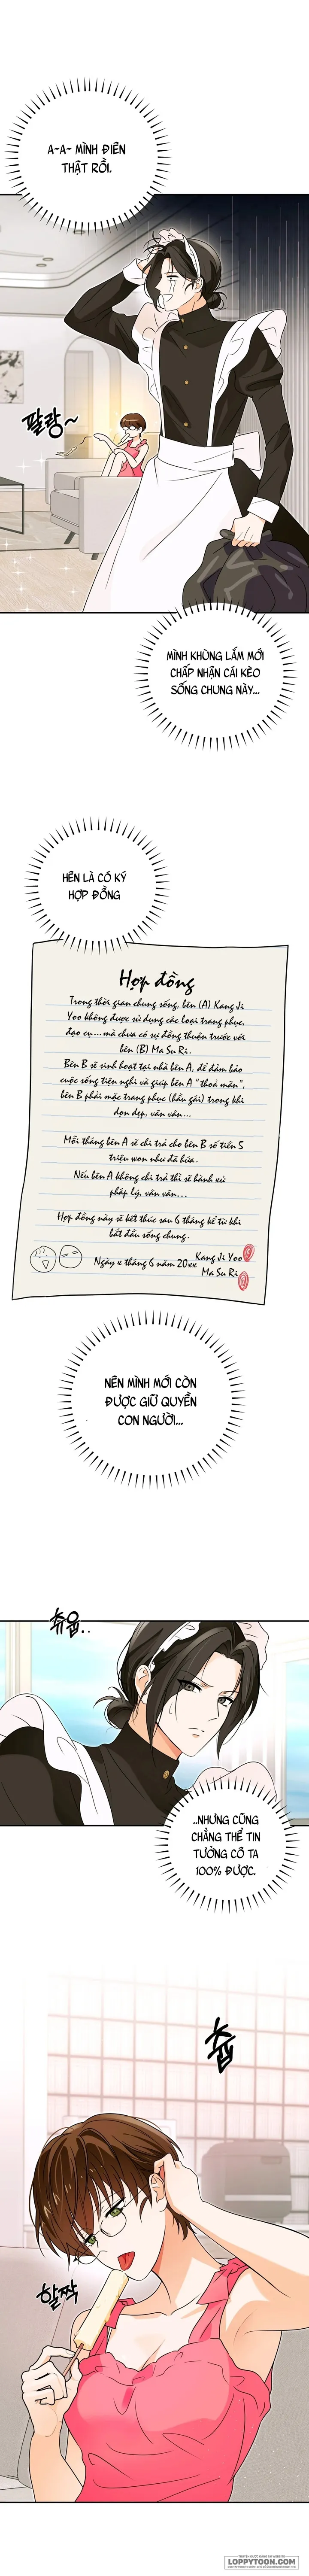 A~A~ MÌNH ĐIÊN
THẬT RỒI.
팔랑~
MÌNH KHÙNG LẮM MỚI
CHẤP NHẬN CÁI KÈO
SỐNG CHUNG NÀY...
HÊN LÀ CÓ KÝ
HỢP ĐỒNG
Hợp đồng
Trong thời gian chung sống, bên (A) Kang Ji
Yoo không được sử dụng các loại trang phục,
đạo cụ ... mà chưa có sự đồng thuận trước với
bên (B) Ma Su Ri.
Bên B sẽ sinh hoạt tại nhà bên A, để đảm bảo
cuộc sống tiện nghi và giúp bên A "thoả mãn",
bên B phải mặc trang phục (hầu gái) trong khi
dọn dẹp, vân vân ...
Mỗi tháng bên A sẽ chi trả cho bên B số tiền 5
triệu won như đã hứa.
Nếu bên A không chi trả thì sẽ hành xử
pháp lý, vân vân...
Hợp đồng này sẽ kết thúc sau 6 tháng kể từ khi
bắt đầu sống chung.
Ngày x tháng 6 năm 20xx
Kang Ji Yoo
Ma Su Ri
NÊN MÌNH MỚI CÒN
ĐƯỢC GIỮ QUYỀN
CON NGƯỜI...
츄웁..
..NHƯNG CŨNG
CHẲNG THỂ TIN
TƯỞNG CÔ TA
100% ĐƯỢC.
츕
할짝
LOPPYTOON.COM